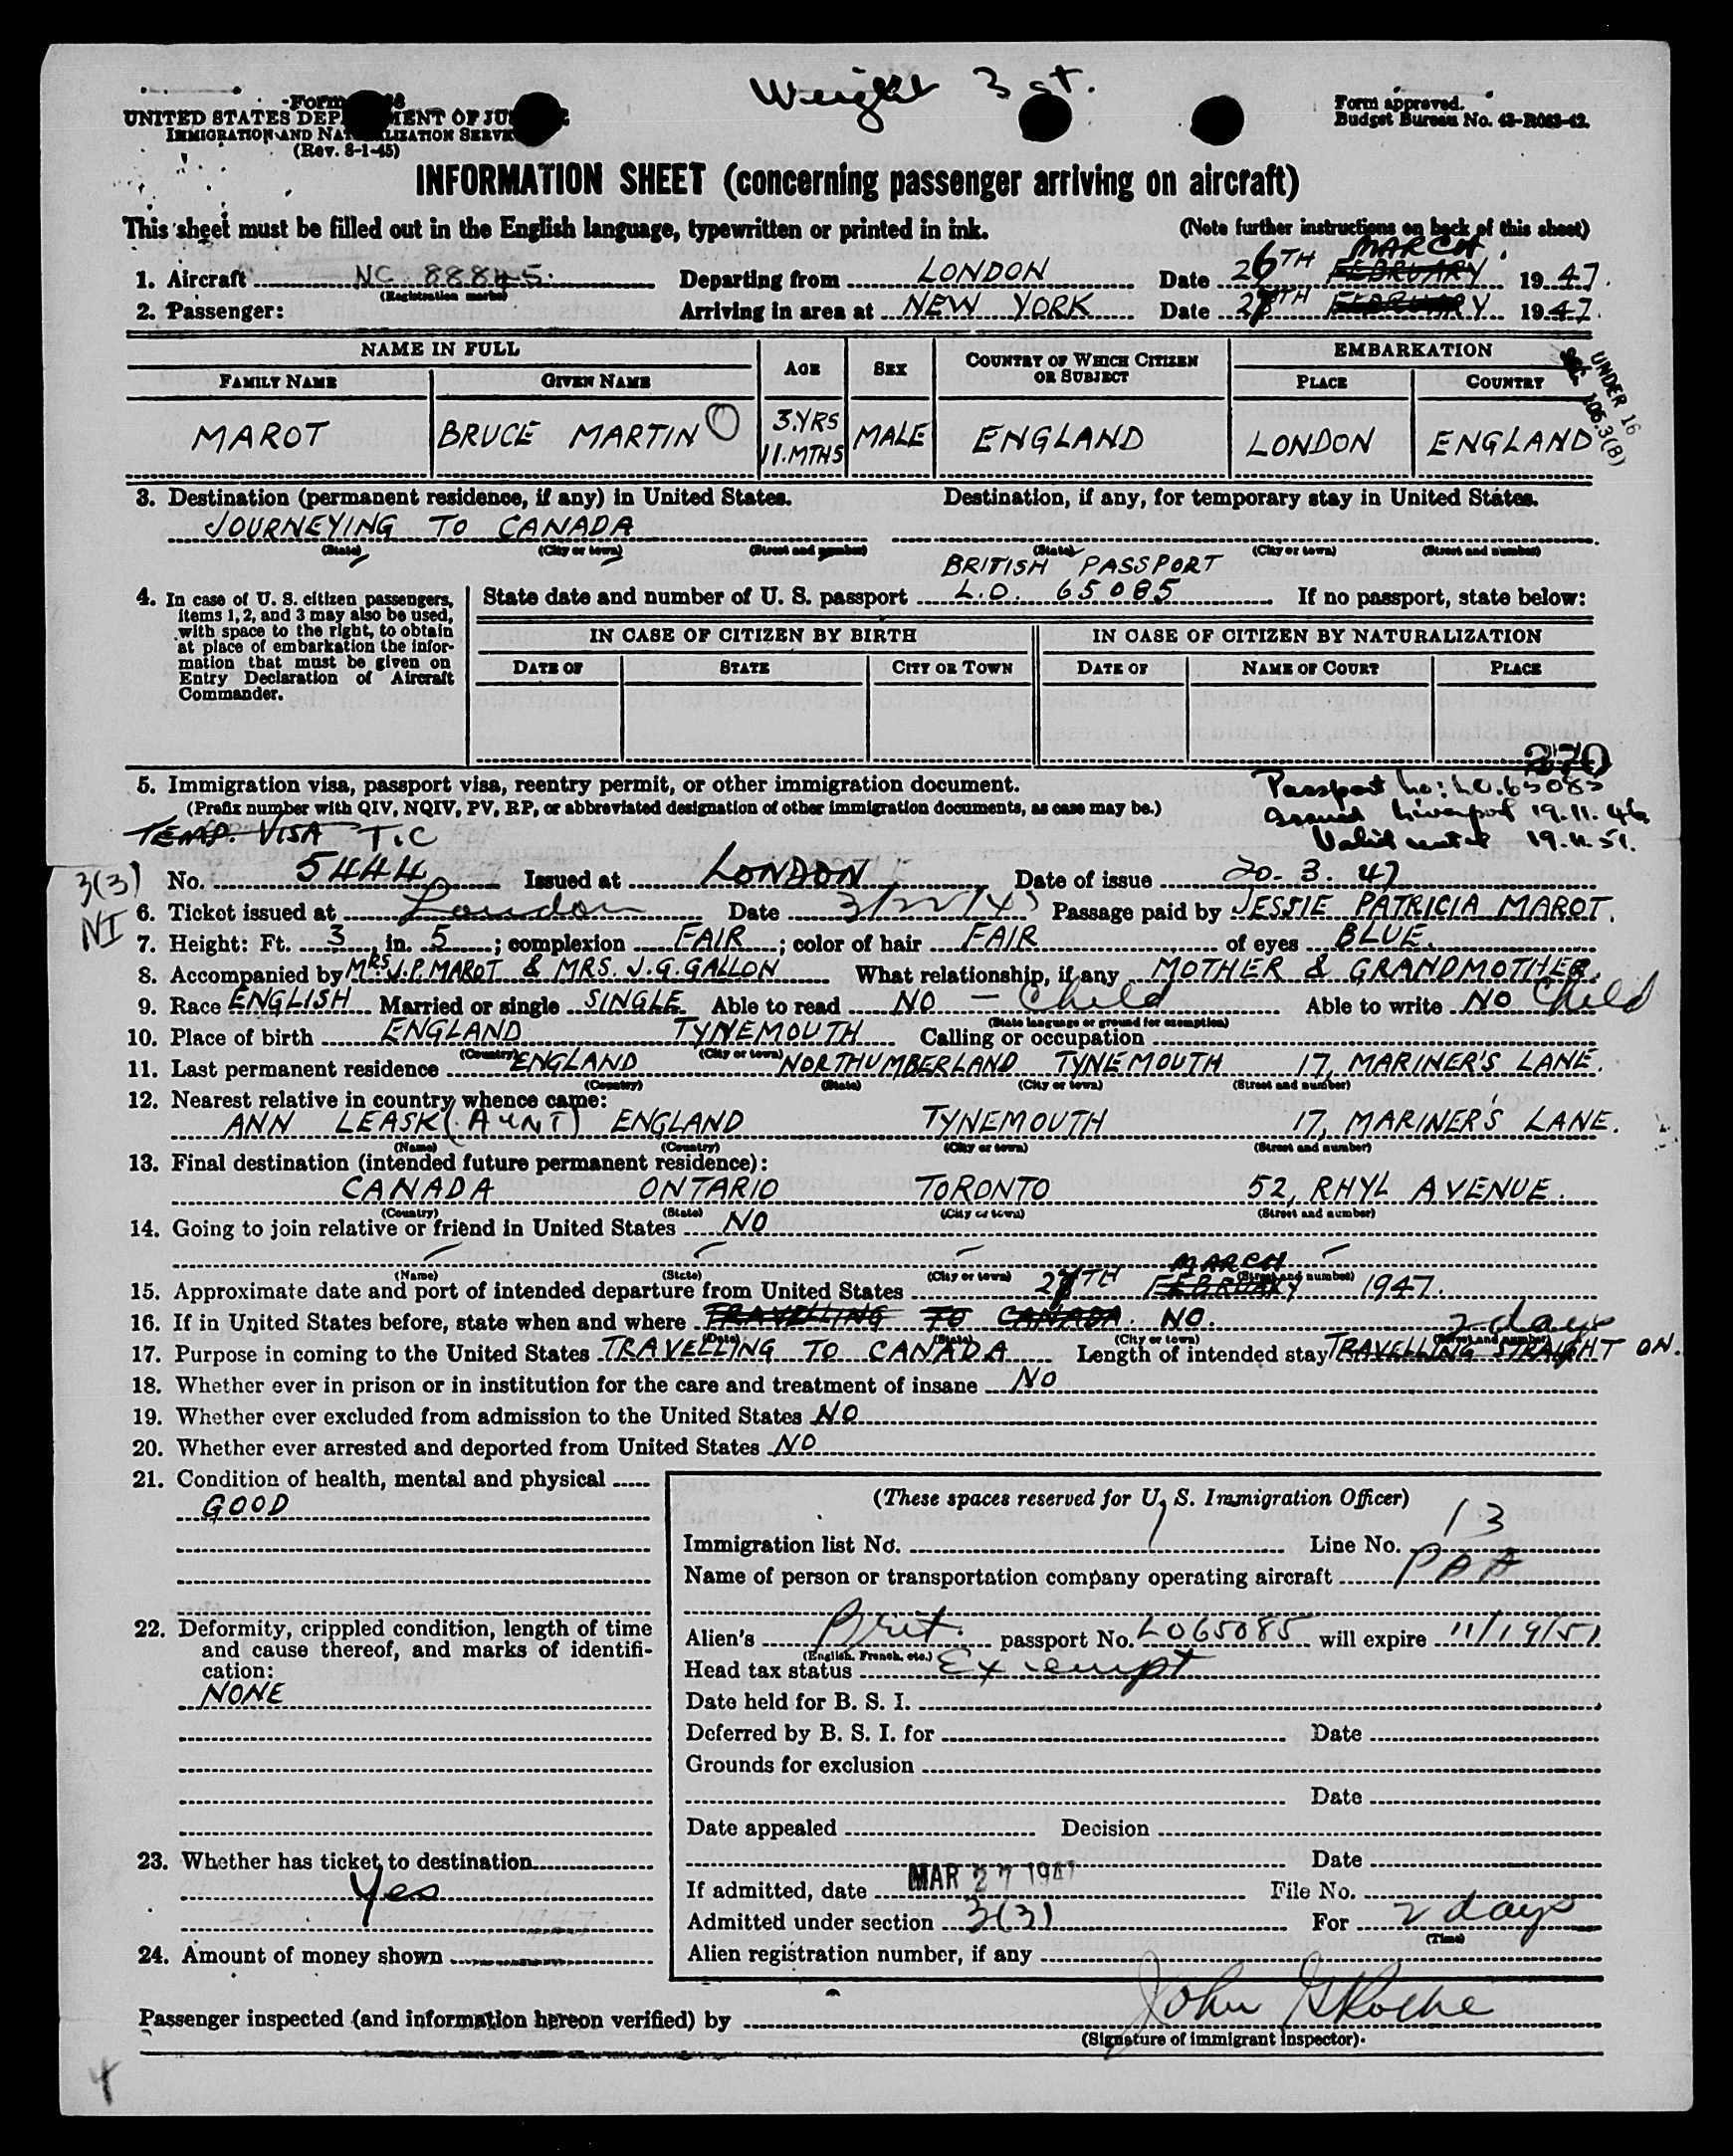 Weight 3 st.
Form
UNITED STATES DEP MENT OF JU
IMMIGRATION AND NAT LIZATION SERV
(Rev. 8-1-45)
Form approved.
Budget Bureau No. 43-R063-42.
INFORMATION SHEET (concerning passenger arriving on aircraft)
This sheet must be filled out in the English language, typewritten or printed in ink. (Note further instructions on back of this sheet)
MARCH
1. Aircraft NC 88845 Departing from LONDON Date 26TH FEBRUARY 1947.
(Registration marks)
2. Passenger: Arriving in area at NEW YORK Date TH FEBRUARY 1947.
NAME IN FULL AGE SEX COUNTRY OF WHICH CITIZEN OR SUBJECT EMBARKATION
FAMILY NAME GIVEN NAME PLACE COUNTRY
UNDER 16
SEC. 106.3(B)
MAROT BRUCE MARTIN 3.YRS 11.MTHS MALE ENGLAND LONDON ENGLAND
3. Destination (permanent residence, if any) in United States. Destination, if any, for temporary stay in United States.
JOURNEYING TO CANADA
(State) (City or town) (Street and number) (State) (City or town) (Street and number)
BRITISH PASSPORT
4. In case of U. S. citizen passengers, items 1, 2, and 3 may also be used, with space to the right, to obtain at place of embarkation the information that must be given on Entry Declaration of Aircraft Commander.
State date and number of U. S. passport L.O. 65085 If no passport, state below:
IN CASE OF CITIZEN BY BIRTH IN CASE OF CITIZEN BY NATURALIZATION
DATE OF STATE CITY OR TOWN DATE OF NAME OF COURT PLACE
270
5. Immigration visa, passport visa, reentry permit, or other immigration document.
(Prefix number with QIV, NQIV, PV, RP, or abbreviated designation of other immigration documents, as case may be.)
Passport No: LO.65085
issued Liverpool 19.11.46
Valid until 19.11.51.
TEMP. VISA T.C
3(3)
NI
No. 5444 Issued at LONDON Date of issue 20. 3. 47
6. Ticket issued at London Date 3/22/47 Passage paid by JESSIE PATRICIA MAROT.
7. Height: Ft. 3, in. 5; complexion FAIR; color of hair FAIR of eyes BLUE.
8. Accompanied by MRS J.P. MAROT & MRS. J.G. GALLON What relationship, if any MOTHER & GRANDMOTHER.
9. Race ENGLISH Married or single SINGLE Able to read NO - Child Able to write NO Child
(State language or ground for exemption)
10. Place of birth ENGLAND TYNEMOUTH Calling or occupation
(Country) (City or town)
11. Last permanent residence ENGLAND NORTHUMBERLAND TYNEMOUTH 17, MARINER'S LANE.
(Country) (State) (City or town) (Street and number)
12. Nearest relative in country whence came:
ANN LEASK (AUNT) ENGLAND TYNEMOUTH 17, MARINER'S LANE.
(Name) (Country) (City or town) (Street and number)
13. Final destination (intended future permanent residence):
CANADA ONTARIO TORONTO 52, RHYL AVENUE.
(Country) (State) (City or town) (Street and number)
14. Going to join relative or friend in United States NO
(Name) (State) (City or town) (Street and number)
MARCH
15. Approximate date and port of intended departure from United States TH FEBRUARY 1947.
16. If in United States before, state when and where TRAVELLING TO CANADA. NO.
(Date) (State) (City or town) (Street and number)
2 days
17. Purpose in coming to the United States TRAVELLING TO CANADA Length of intended stay TRAVELLING STRAIGHT ON.
18. Whether ever in prison or in institution for the care and treatment of insane NO
19. Whether ever excluded from admission to the United States NO
20. Whether ever arrested and deported from United States NO
21. Condition of health, mental and physical
GOOD
22. Deformity, crippled condition, length of time and cause thereof, and marks of identification:
NONE
23. Whether has ticket to destination
Yes
24. Amount of money shown
(These spaces reserved for U. S. Immigration Officer)
Immigration list No. 1 Line No. 13
Name of person or transportation company operating aircraft PAA
Alien's Brit. passport No. LO65085 will expire 11/19/51
(English, French, etc.)
Head tax status Exempt
Date held for B. S. I.
Deferred by B. S. I. for Date
Grounds for exclusion
Date
Date appealed Decision
Date
If admitted, date MAR 27 1947 File No.
Admitted under section 3(3) For 2 days
(Time)
Alien registration number, if any
Passenger inspected (and information hereon verified) by John G Roche
(Signature of immigrant inspector).
4